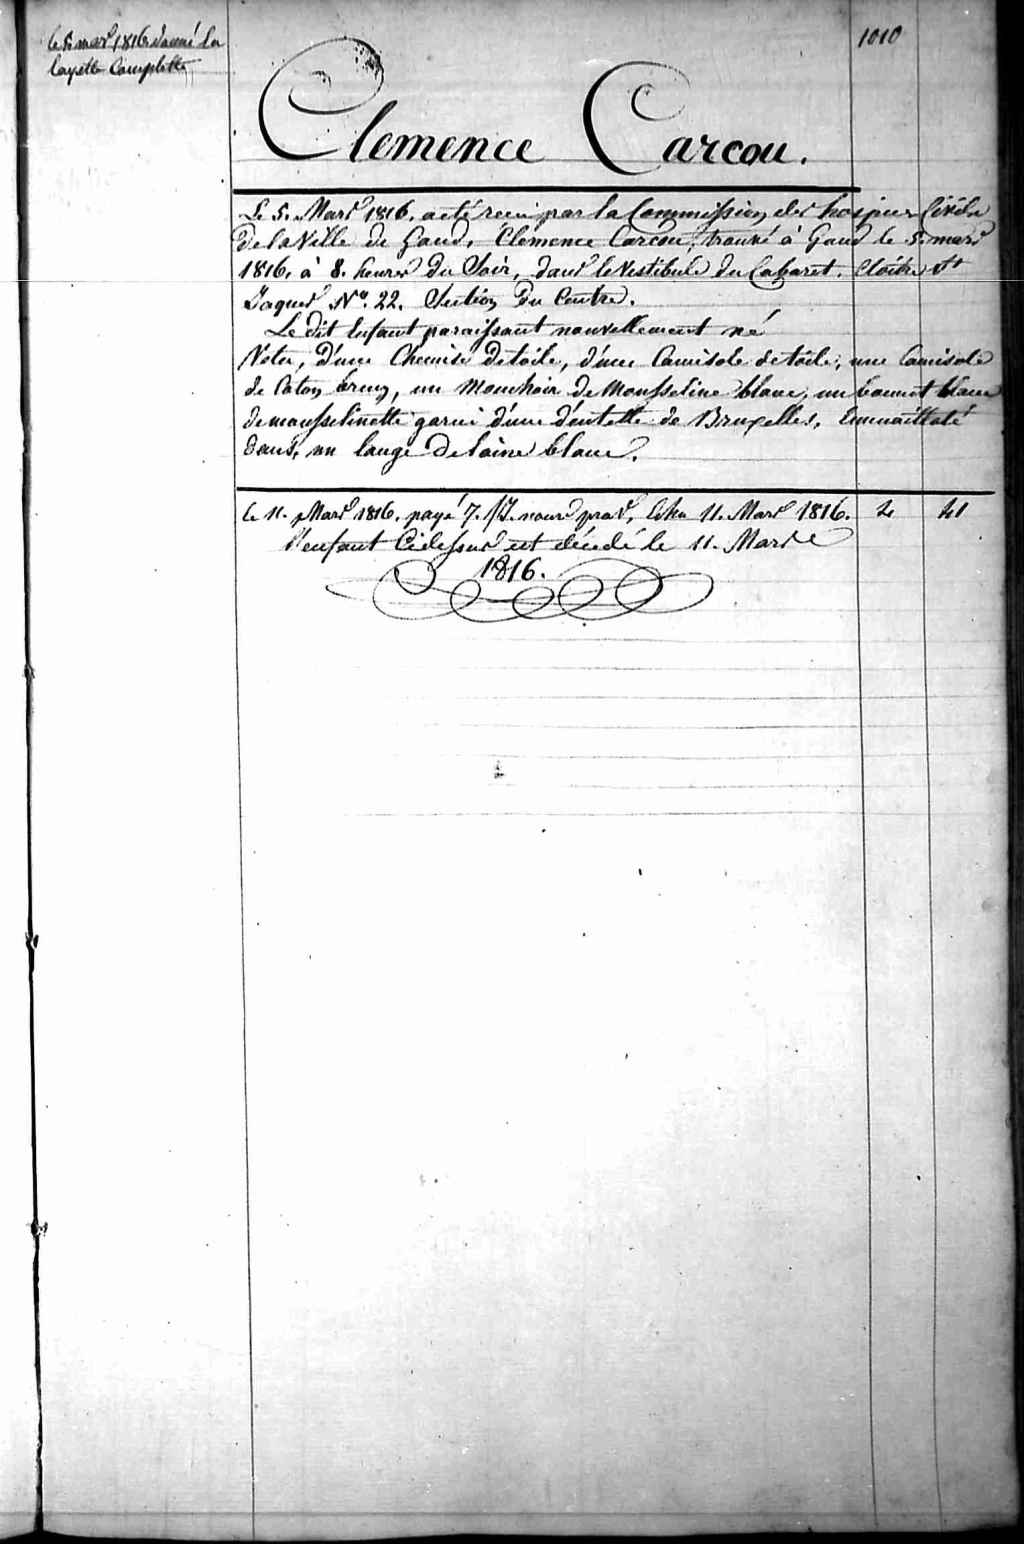 le 5 mars 1816 donné la
layette Complette
1010
Clemence Carcou.
Le 5. Mars 1816. a eté recu par la Commission des hospices Civils
de la Ville de Gand, Clemence Carcou, trouvé à Gand le 5. mars
1816. à 8. heures du Soir, dans le Vestibule du Cabaret. Cloître St
Jaques No. 22. Section Du Centre.
Le dit Enfant paraissant nouvellement né
Vetu, D'une Chemise de toile, d'une Camisole de toile, une Camisole
de Coton brun, un Mouchoir de Mousseline blanc, un bonnet blanc
de mousselinette garni d'une d'entelle de Bruxelles, Emmaillotté
dans, un lange de laine blanc.
Le 11. Mars 1816. payé 7. Echu 11. Mars 1816. 2 41
L'enfant Cidessus est décédé le 11. Mars
1816.